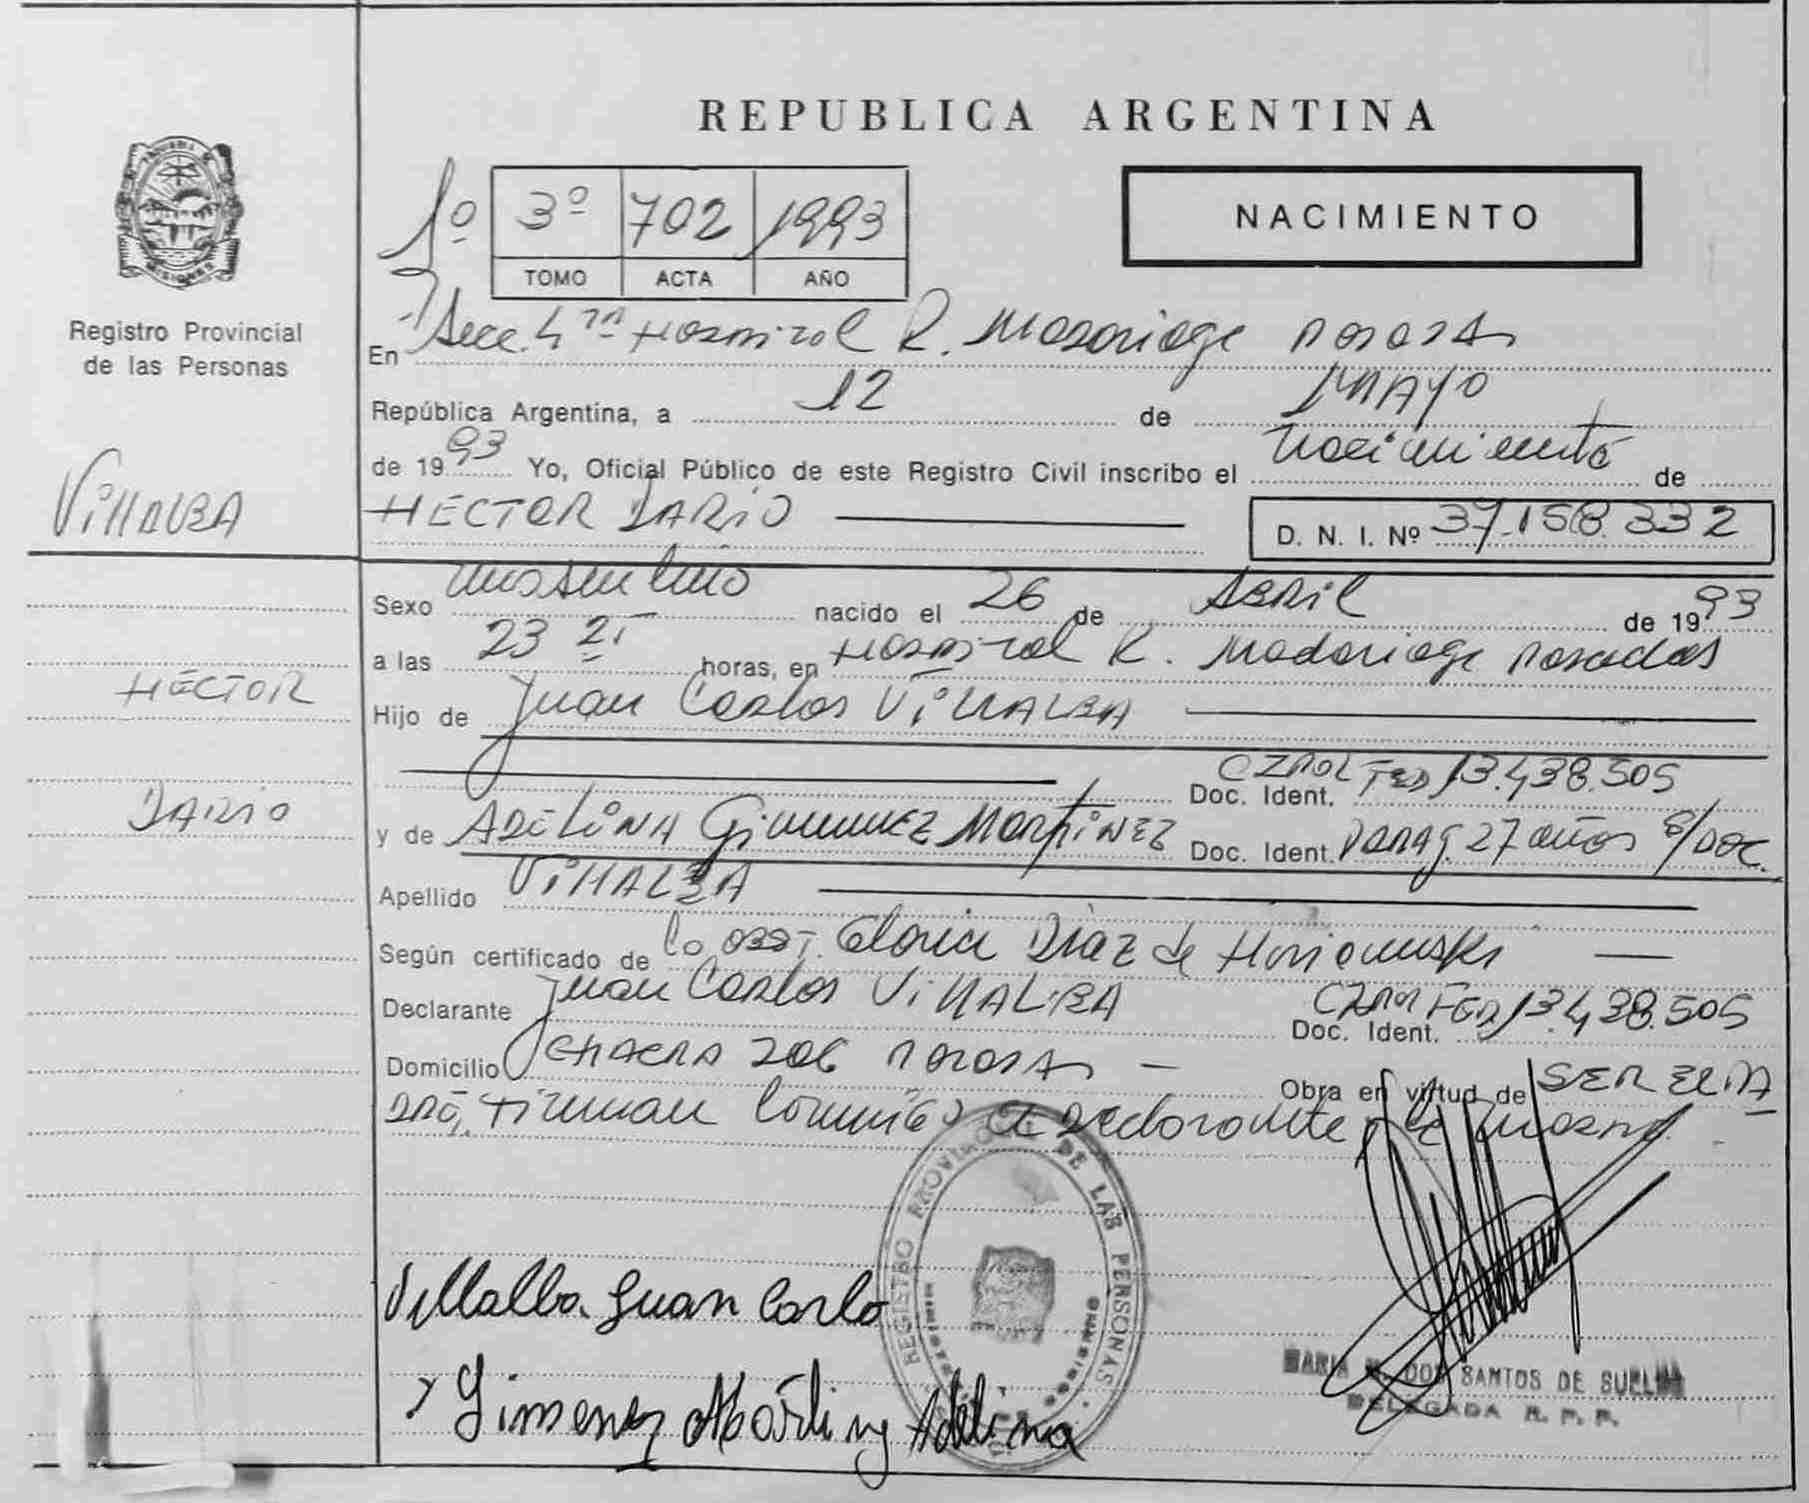 REPUBLICA ARGENTINA
1º 3º 702 1993
TOMO ACTA AÑO
NACIMIENTO
MISIONES
Registro Provincial
de las Personas
En Secc. 4ta Hospital R. Madariaga Posadas
República Argentina, a 12 de MAYO
de 1993 Yo, Oficial Público de este Registro Civil inscribo el nacimiento de
VILLALBA
HECTOR DARIO
D. N. I. Nº 37.158.332
Sexo masculino nacido el 26 de ABRIL de 1993
a las 23 21 horas, en Hospital R. Madariaga Posadas
HÉCTOR
Hijo de Juan Carlos VILLALBA
Doc. Ident. 13.438.505
DARIO
y de ADELINA Gimenez MARTINEZ Doc. Ident. Parag. 27 años s/DOC.
Apellido VILLALBA
Según certificado de la obst. Gloria Diaz de
Declarante Juan Carlos VILLALBA Doc. Ident. 13.438.505
Domicilio CHACRA 206 Posadas
Obra en virtud de SER EL PA
DRE, Firman conmigo el declarante y la
REGISTRO PROVINCIAL DE LAS PERSONAS
MISIONES
Villalba Juan Carlo
Gimenez Adelina
MARIA DOS SANTOS DE
DELEGADA R. P. P.